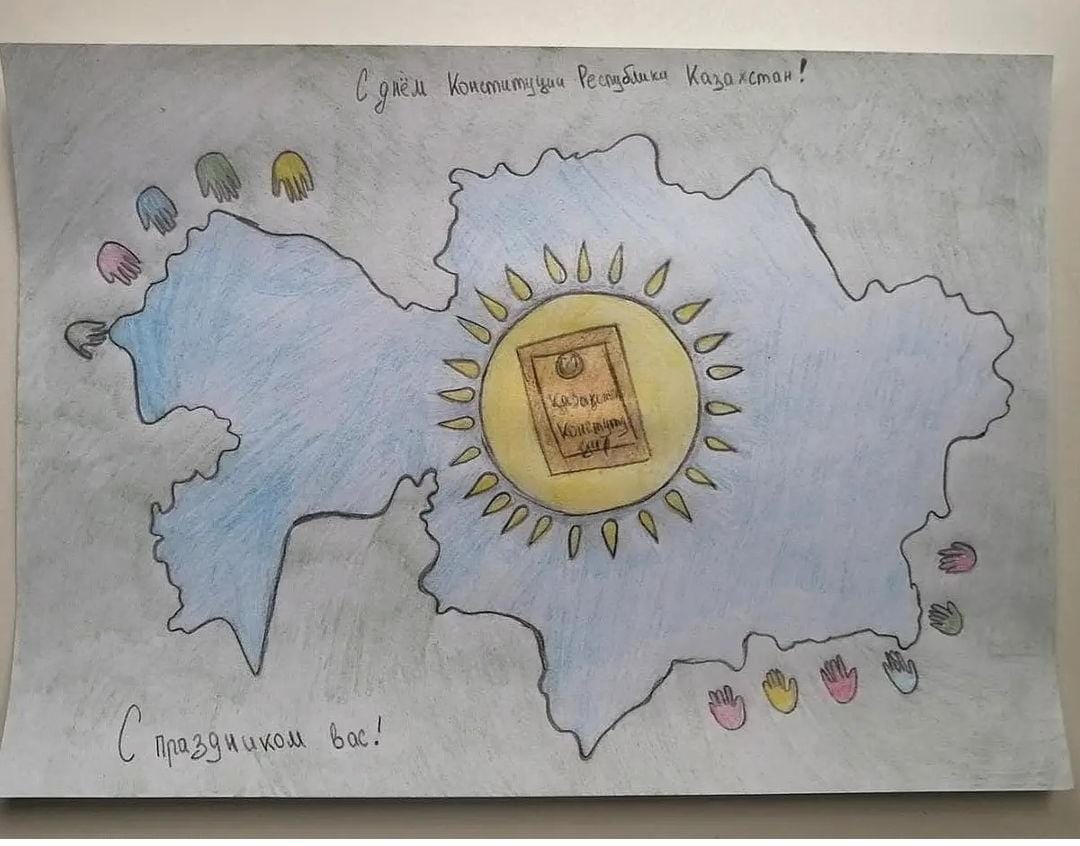 С днём Конституции Республики Казахстан!
Конститу
ция
С праздником вас!